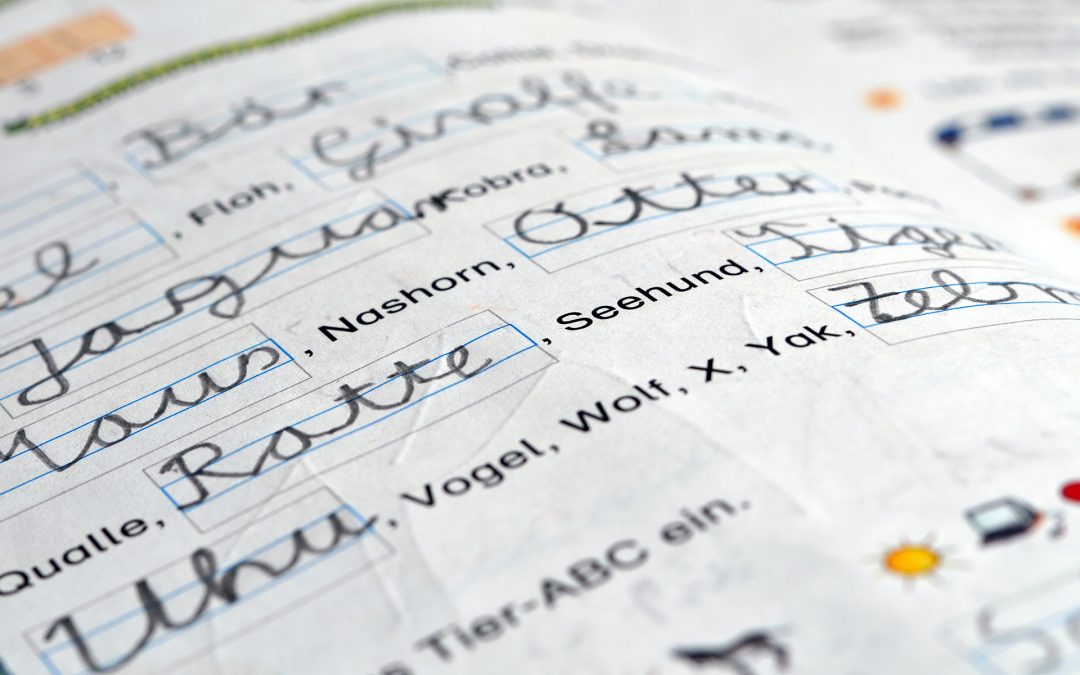 Bär
el, Floh, Giraffe
Jaguar Kobra, Lamm
Maus, Nashorn, Otter,
Qualle, Ratte, Seehund, Tiger
Uhu, Vogel, Wolf, X, Yak, Zebr
s Tier-ABC ein.